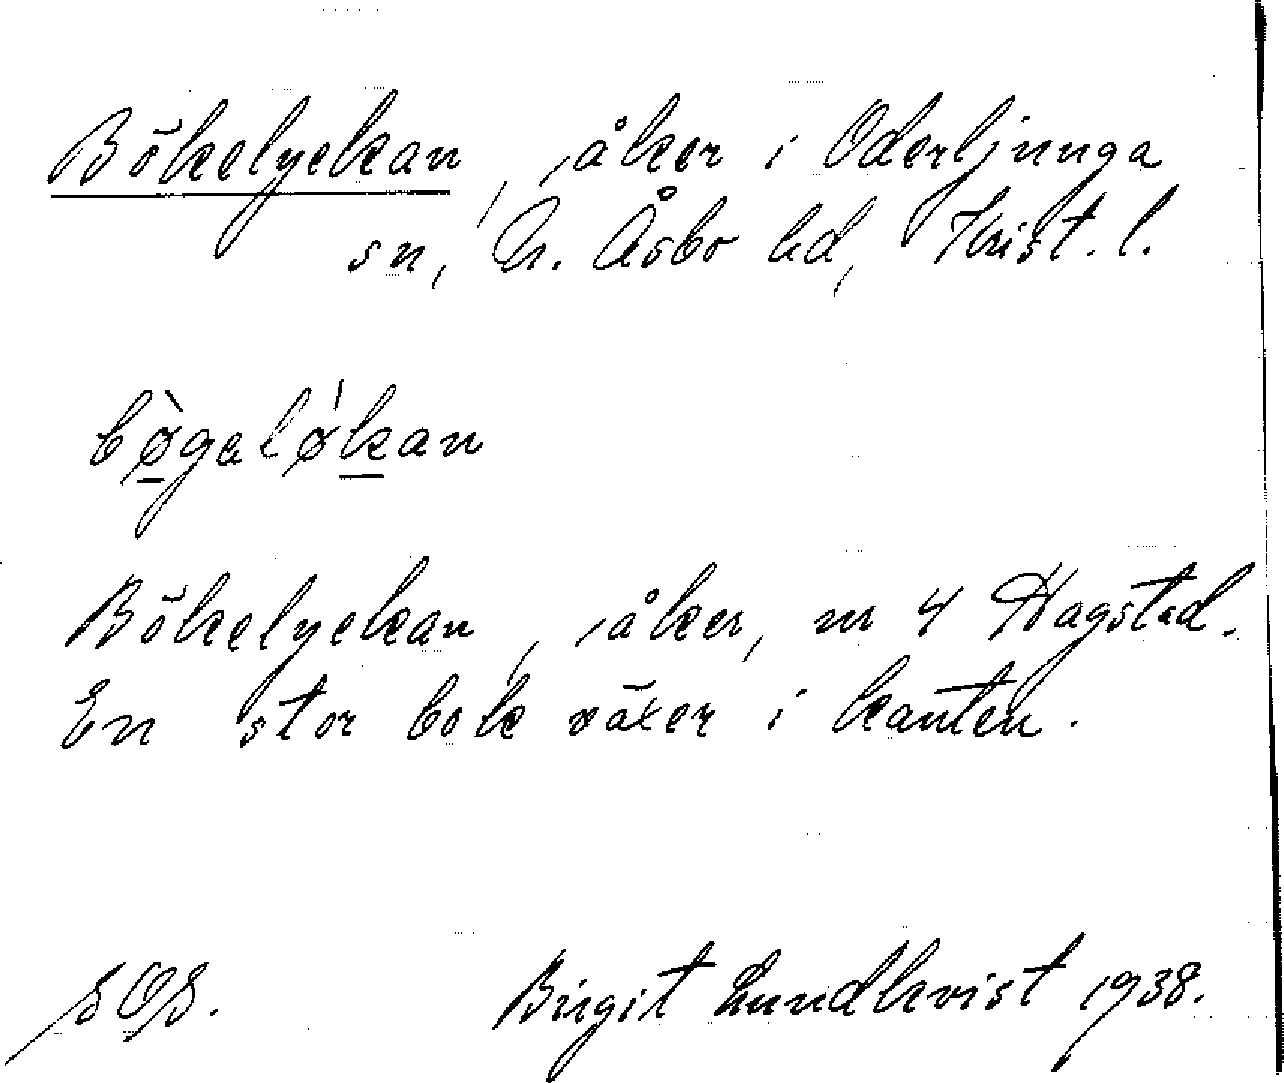 Bökelyckan, åker i Oderljunga
sn, N. Åsbo hd, Krist. l.
bø̀galǿkan
Bökelyckan, åker, nr 4 Hagstad.
En stor bok växer i kanten.
SOS. Birgit Lundkvist 1938.